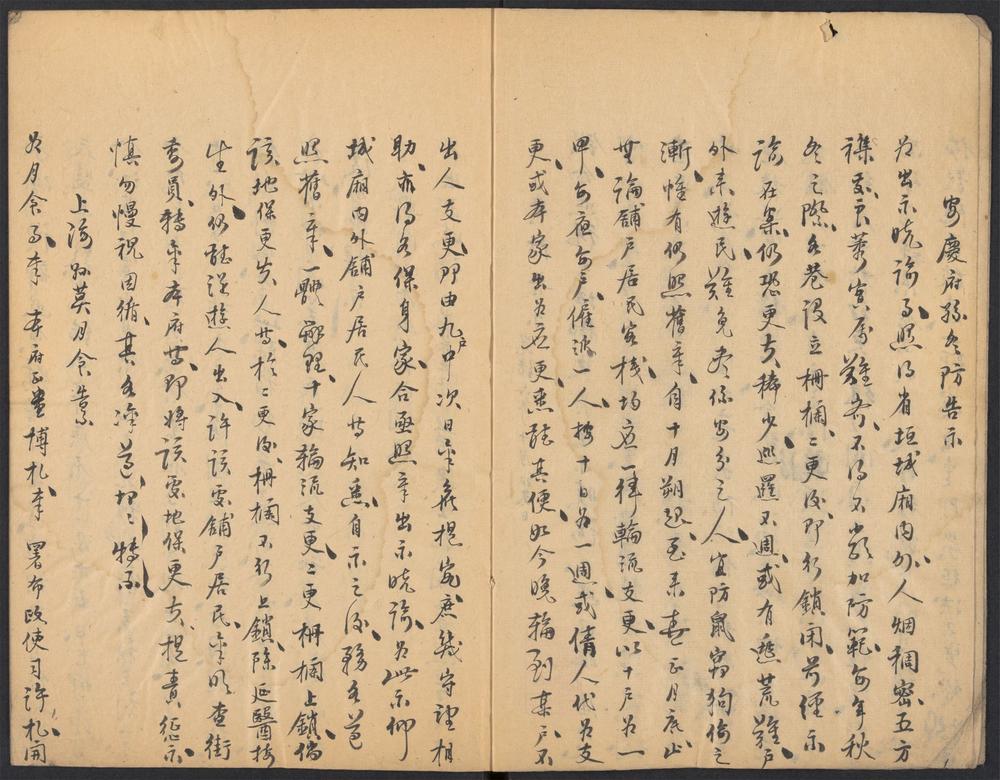 安慶府孫冬防告示
為出示曉諭事照得省垣城廂內外人烟稠密五方
襍處良莠實屬難分不得不嚴加防範每年秋
冬之際各巷設立柵欄二更後即行鎖閉前經示
諭在案仍恐更夫稀少巡邏不週或有逃荒難户
外來遊民難免盡係安分之人宜防鼠竊狗偷之
漸惟有仍照舊章自十月朔起至來春正月底止
無論舖户居民客棧均應一律輪流支更以十户為一
甲每夜每户僱派一人按十日為一週或倩人代為支
更或本家出為應更悉聽其便如今晚輪到某户不
出人支更即由九户中次日稟究庶幾守望相
助亦得各保身家合亟照章出示曉諭為此示仰
城廂內外舖户居民人等知悉自示之後務各遵
照舊章一體辦理十家輪流支更二更柵欄上鎖倘
該地保更夫人等於二更後柵欄不行上鎖除延醫接
生外仍聽泛遊人出入許該處舖户居民稟明查街
委員轉稟本府等即將該處地保更夫提責懲示
慎勿慢視因循其各凜遵切切特示
上海縣莫月食告示
為月食事奉 本府正堂博札奉 署布政使司許札開